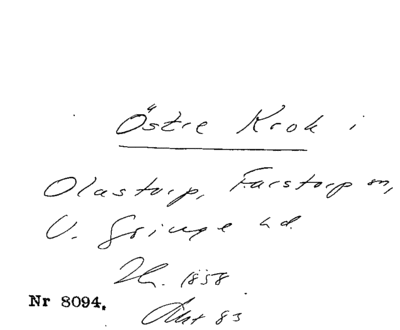 Östre Krok i
Olastorp, Farstorp sn,
V. Göinge hd.
1858
Nr 8094.
Akt 83